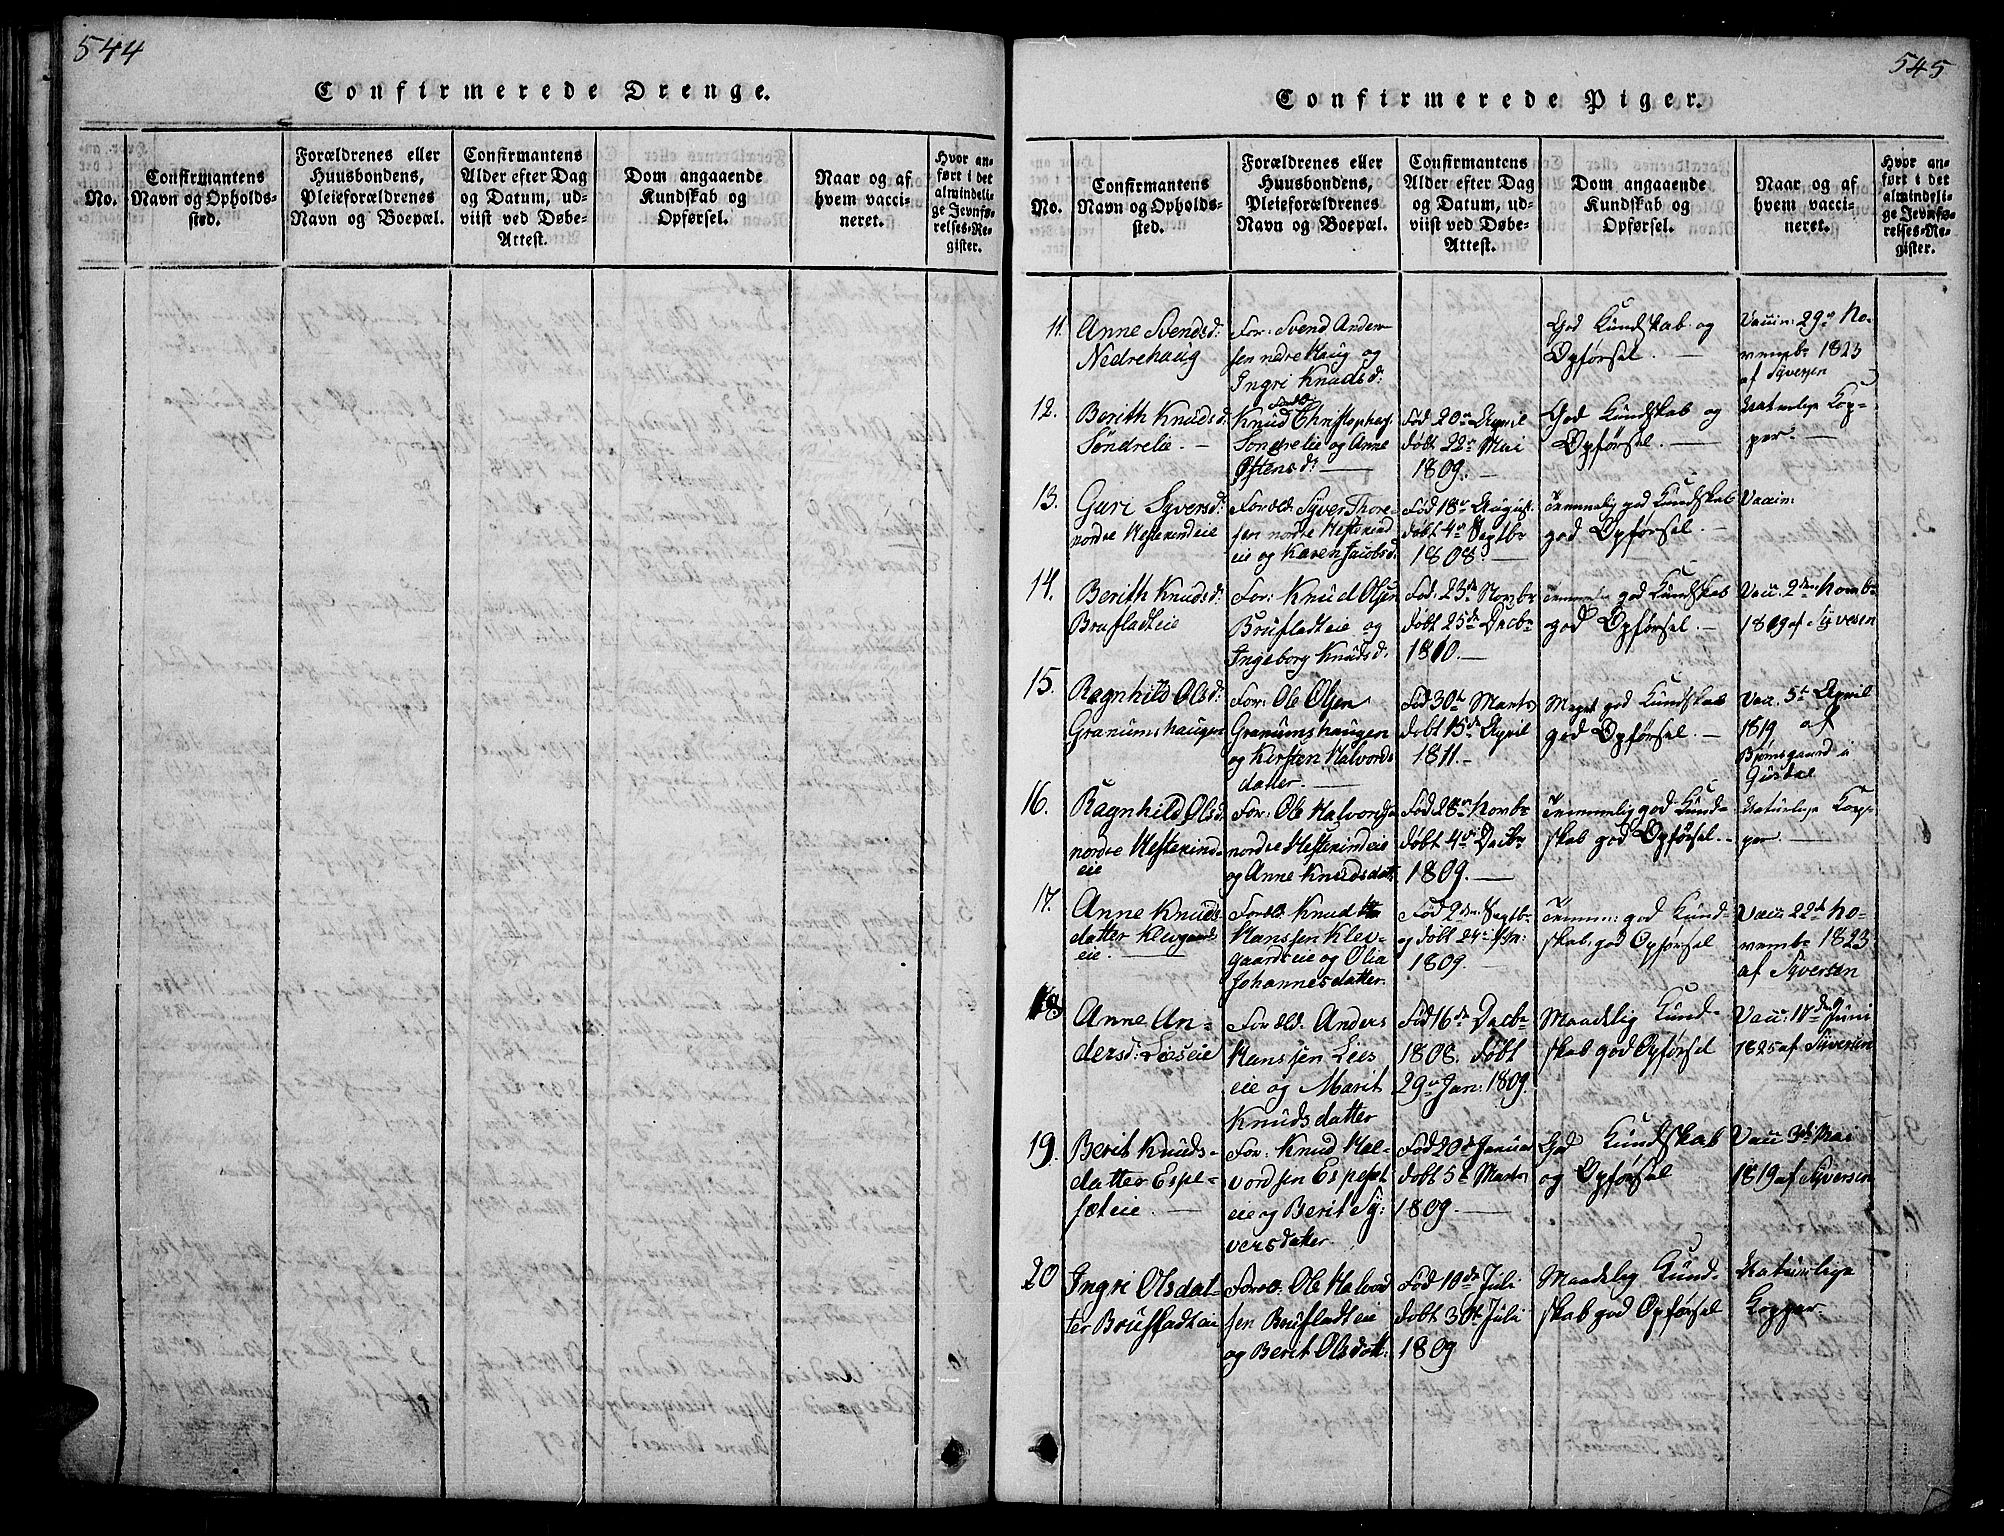 544
Confirmerede Drenge.
No.
Confirmantens
Navn og Opholds-
sted.
Forældrenes eller
Huusbondens,
Pleieforældrenes
Navn og Boepæl.
Confirmantens
Alder efter Dag
og Datum, ud-
viist ved Døbe-
Attest.
Dom angaaende
Kundskab og
Opførsel.
Naar og af
hvem vacci-
neret.
Hvor an-
ført i det
almindeli-
ge Jevnfø-
relses-Re-
gister.
545
Confirmerede Piger.
No.
Confirmantens
Navn og Opholds-
sted.
Forældrenes eller
Huusbondens,
Pleieforældrenes
Navn og Boepæl.
Confirmantens
Alder efter Dag
og Datum, ud-
viist ved Døbe-
Attest.
Dom angaaende
Kundskab og
Opførsel.
Naar og af
hvem vacci-
neret.
Hvor an-
ført i det
almindeli-
ge Jevnfø-
relses-Re-
gister.
11.
Anne Svendsd:
Nedrehaug
For: Svend Ander-
sen nedre Haug og
Ingri Knudsd:
God Kundskab og
Opførsel.
Vacin: 29 No-
vembr 1823
af Syversen
12.
Berith Knudsd:
Søndrelie
Knud Christophers.
Søndrelie og Anne
Østensd:
Fød 20 April
døbt 22 Mai
1809.
God Kundskab og
Opførsel.
Naturlige Kop-
per.
13.
Guri Syversd:
nordre Hestekindeie
Foræld: Syver Thore-
sen nordre Hestekind
eie og Karen Jacobsd:
Fød 18 August
døbt 4 Septbr
1808
Temmelig god Kundskab
god Opførsel.
Vaccin:
14.
Berith Knudsd:
Brufladteie
For: Knud Olsen
Brufladteie og
Ingeborg Knudsd:
Fød: 23de Novbr
døbt 25de Decbr
1810.
Temmelig god Kundskab
god Opførsel.
Vacc: 2den Novmbr
1809 af Syvesen
15.
Ragnhild Olsd:
Granumshaugen
For: Ole Olsen
Granumshaugen
og Kirsten Halvords
datter.
Fød 30te Marts
døbt 15de April
1811.
Meget god Kundskab
god Opførsel.
Vacc. 5te April
1819 af
Bjørnsgaard i
Gusdal
16.
Ragnhild Olsd:
nordre Hestekind-
eie
For: Ole Halvordsen
nordre Hestekindeie
og Anne Knudsdatt:
Fød 28 Novbr
døbt 4 Decbr
1809.
Temmelig god Kund-
skab god Opførsel.
Naturlige Kop-
per.
17.
Anne Knuds-
datter Klevgaards
eie.
Foræld: Knud
Hanssen Klev-
gaardseie og Olia
Johannesdatter.
Fød 2den Septbr
og døbt 24
1809.
Temm: god Kund-
skab, god Opførsel
Vacc: 22de No-
vembr 1823
af Syversen
18
Anne An-
dersd: Lieseie
Foræld: Anders
Hanssen Lies
eie og Marit
Knudsdatter
Fød 16de Decbr
1808. døbt
29 Jan: 1809.
Maadelig Kund-
skab god Opførsel
Vacc: 17de Juni
1825 af Syversen
19.
Berit Knuds-
datter Espe-
sæteie
For: Knud Hal-
vordsen Espeset
eie og Berit Sy-
versdatter.
Fød 20de Januar
døbt 5te Marts
1809.
God Kundskab
og Opførsel
Vacc 3de Mai
1819 af Syversen
20
Ingri Olsdat-
ter Brufladteie
Foræ: Ole Halvod
sen Brufladteie
og Berit Olsdatt:
Fød 10de Juli
døbt 30te Juli
1809
Maadelig Kund-
skab god Opførsel
Naturlige
Kopper.